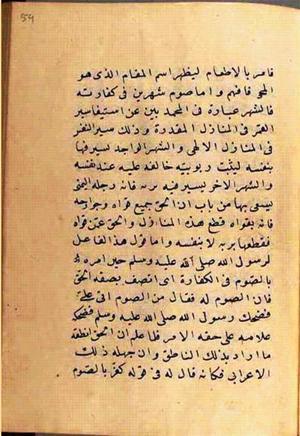 فامر بالاطعام ليظهر اسم المقام الذى هو
المحو فافهم واما صوم شهرين فى كفارته
فالشهر عبارة فى المحمديين عن استيفا سير
القمر فى المنازل المقدرة وذلك سير النفس
فى المنازل الالهى والشهر الواحد يسير فيها
بنفسه ليثبت ربوبيته خالقه عليه عند نفسه
والشهر الاخر يسير فيه بربه فانه رجله التى
يسعى بها من باب ان الحق جميع قواه وجوارحه
فانه بقواه قطع هذه المنازل والحق عين قواه
فقطعها بربه لا بنفسه واما قول هذا القايل
لرسول الله صلى الله عليه وسلم حين امره
بالصوم فى الكفارة اى اتصف بصفه الحق
فان الصوم له فقال من الصوم اتى على
فضحك رسول الله صلى الله عليه وسلم فضحكه
علامه على حقه الامر فلما علم ان الحق انطقه
ما اراد بذلك الناطق وان جهله ذلك
الاعرابى فكانه قال له فى قوله كفر بالصوم